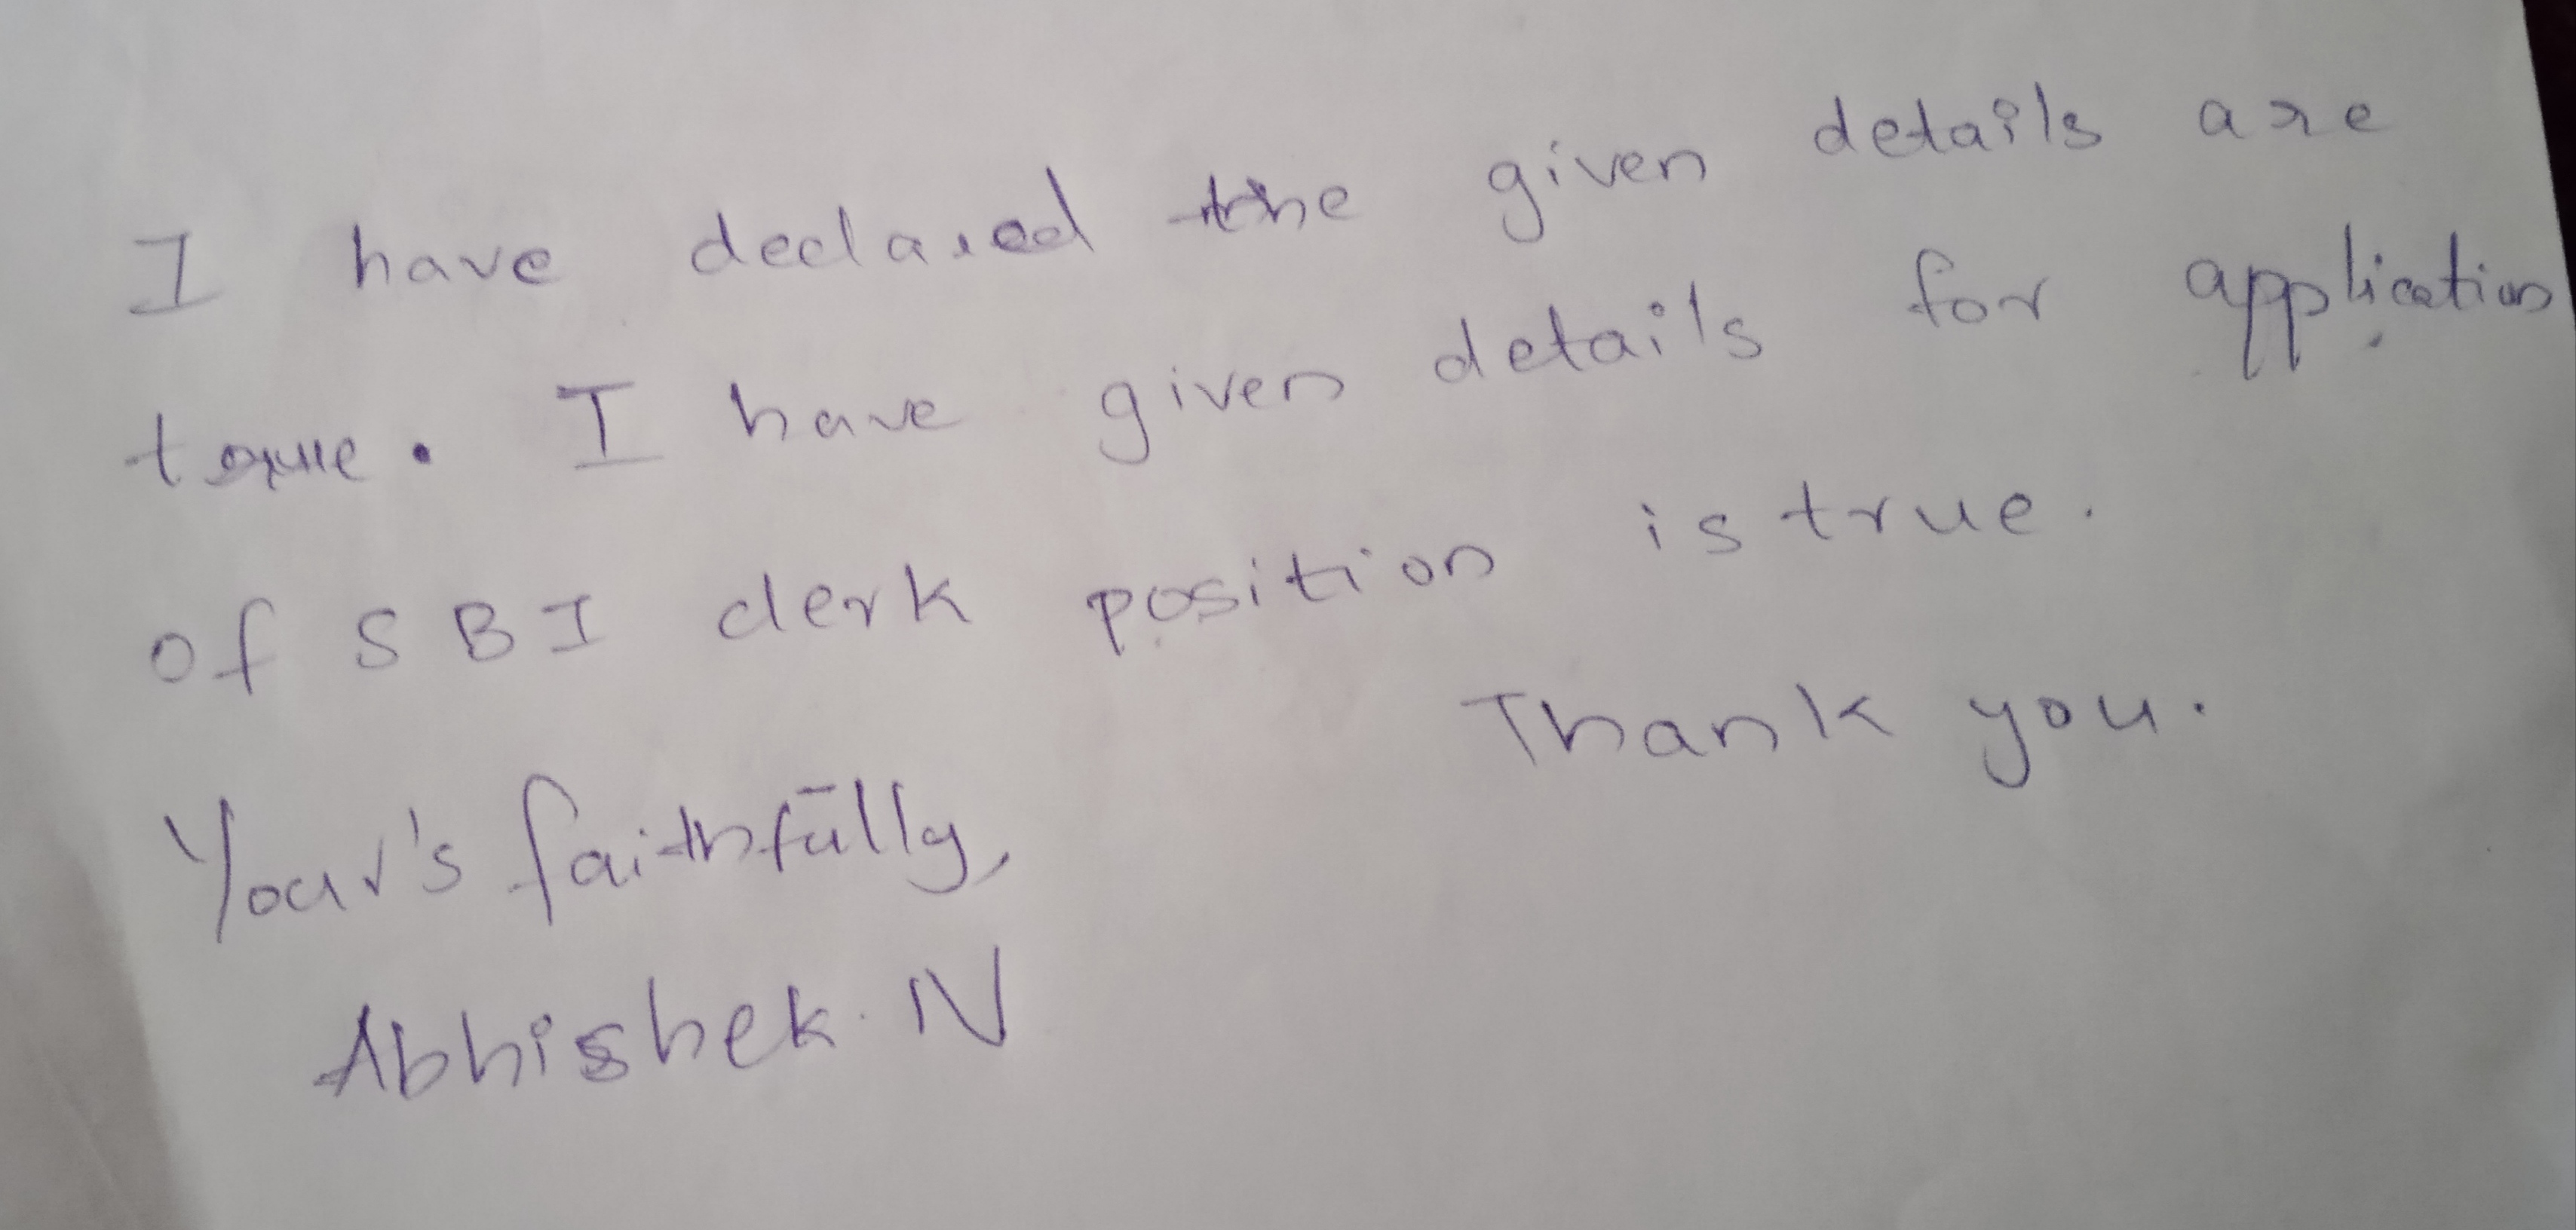 I have declared the given details are
true. I have given details for application
of SBI clerk position is true.
Thank you.
Your's faithfully,
Abhishek. N